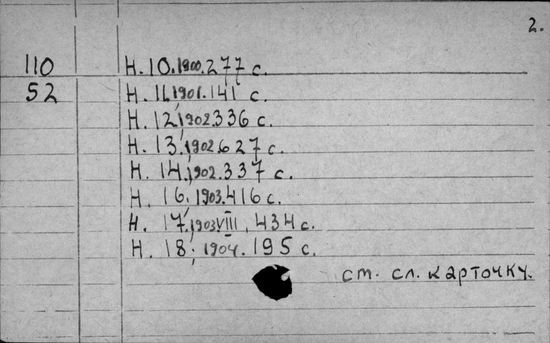 2.
110 Н. 10. 1900. 277 с.
52 Н. 11. 1901. 141 с.
Н. 12, 1902. 336 с.
Н. 13, 1902. 627 с.
Н. 14, 1902. 337 с.
Н. 16, 1903. 416 с.
Н. 17, 1903 VIII, 434 с.
Н. 18, 1904. 195 с.
ст. сл. карточку.